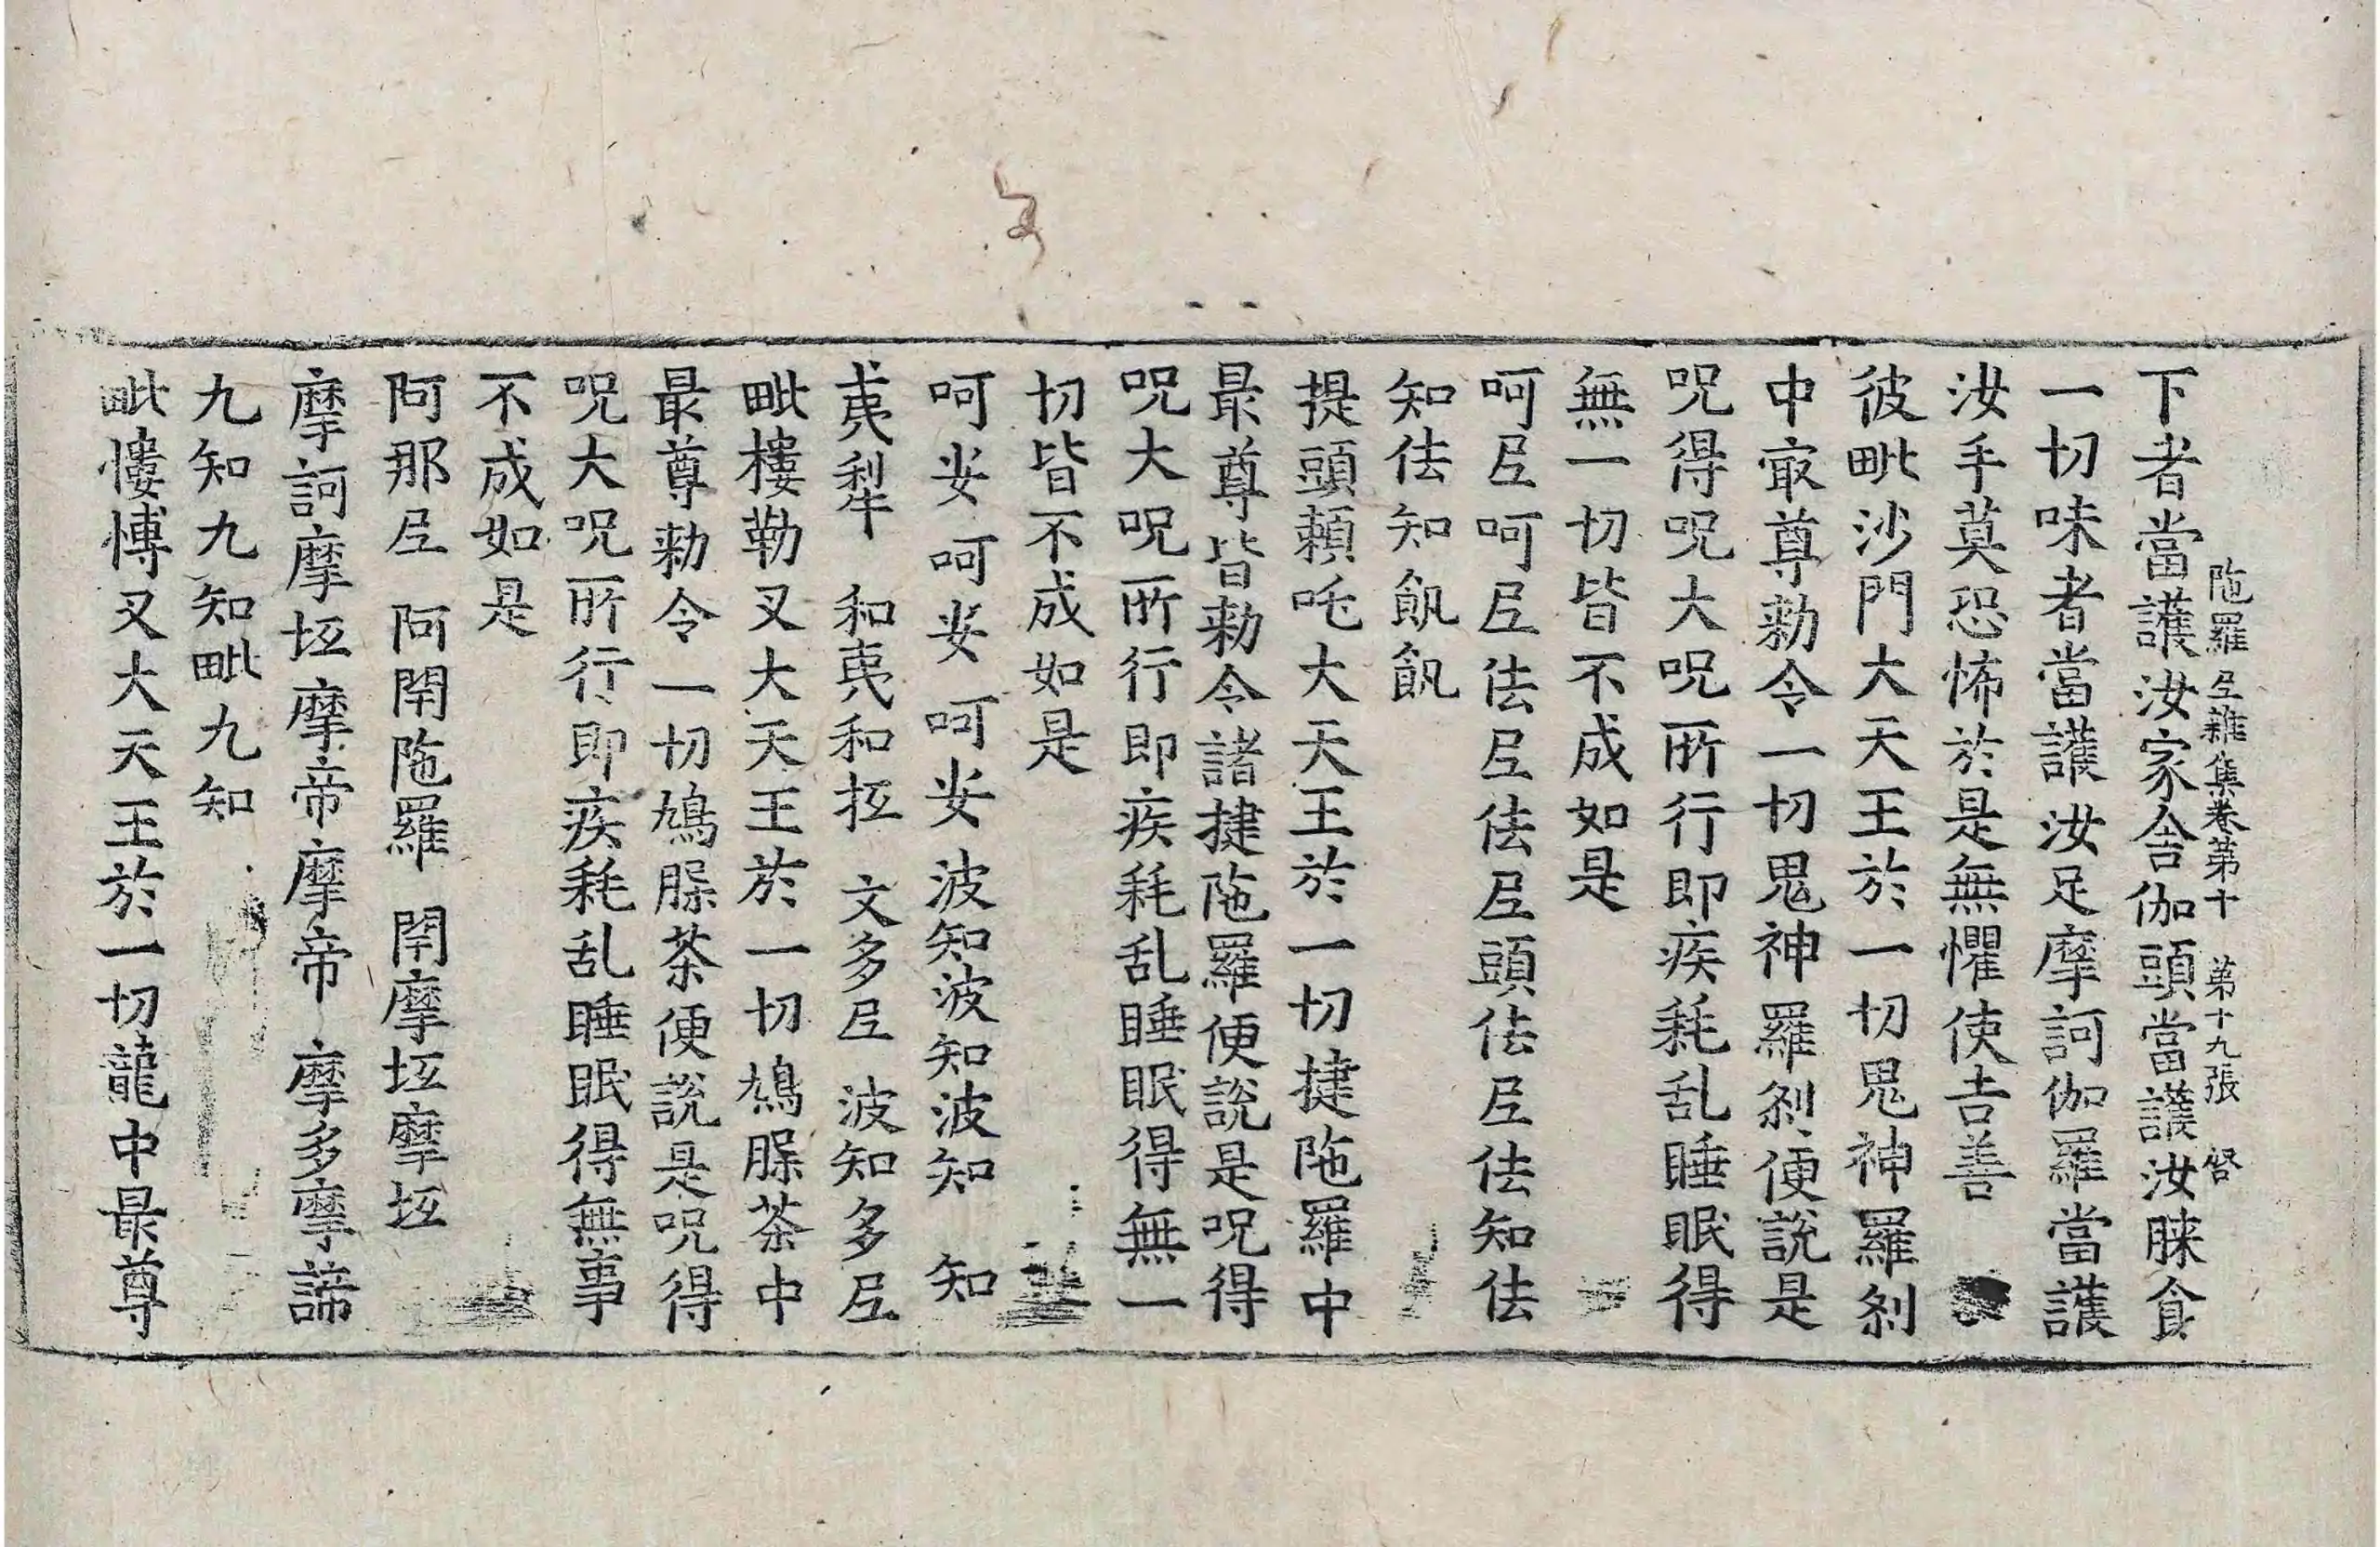 陁羅𡰱雜集卷第十　第十九張　啓
下者當護汝家舍伽頭當護汝脨食
一切味者當護汝足摩訶伽羅當護
汝手莫恐怖於是無懼使吉善
彼毗沙門大天王於一切鬼神羅剎
中㝡尊勑令一切鬼神羅剎便說是
呪得呪大呪所行即疾耗乱睡眠得
無一切皆不成如是
呵𡰱呵𡰱佉𡰱佉𡰱頭佉𡰱佉知佉
知佉知飢飢
提頭賴吒大天王於一切揵陁羅中
最尊皆勑令諸揵陁羅便說是呪得
呪大呪所行即疾耗乱睡眠得無一
切皆不成如是
呵娑呵娑呵娑　波知波知波知　知
夷犁　和夷和扺　文多𡰱　波知多𡰱
毗樓勒叉大天王於一切鳩睩茶中
最尊勑令一切鳩睩茶便說是呪得
呪大呪所行即疾耗乱睡眠得無事
不成如是
阿那𡰱　阿閈陁羅　閈摩坘摩坘
摩訶摩坘摩帝摩帝　摩多摩諦
九知九知毗九知
毗慺博叉大天王於一切龍中最尊